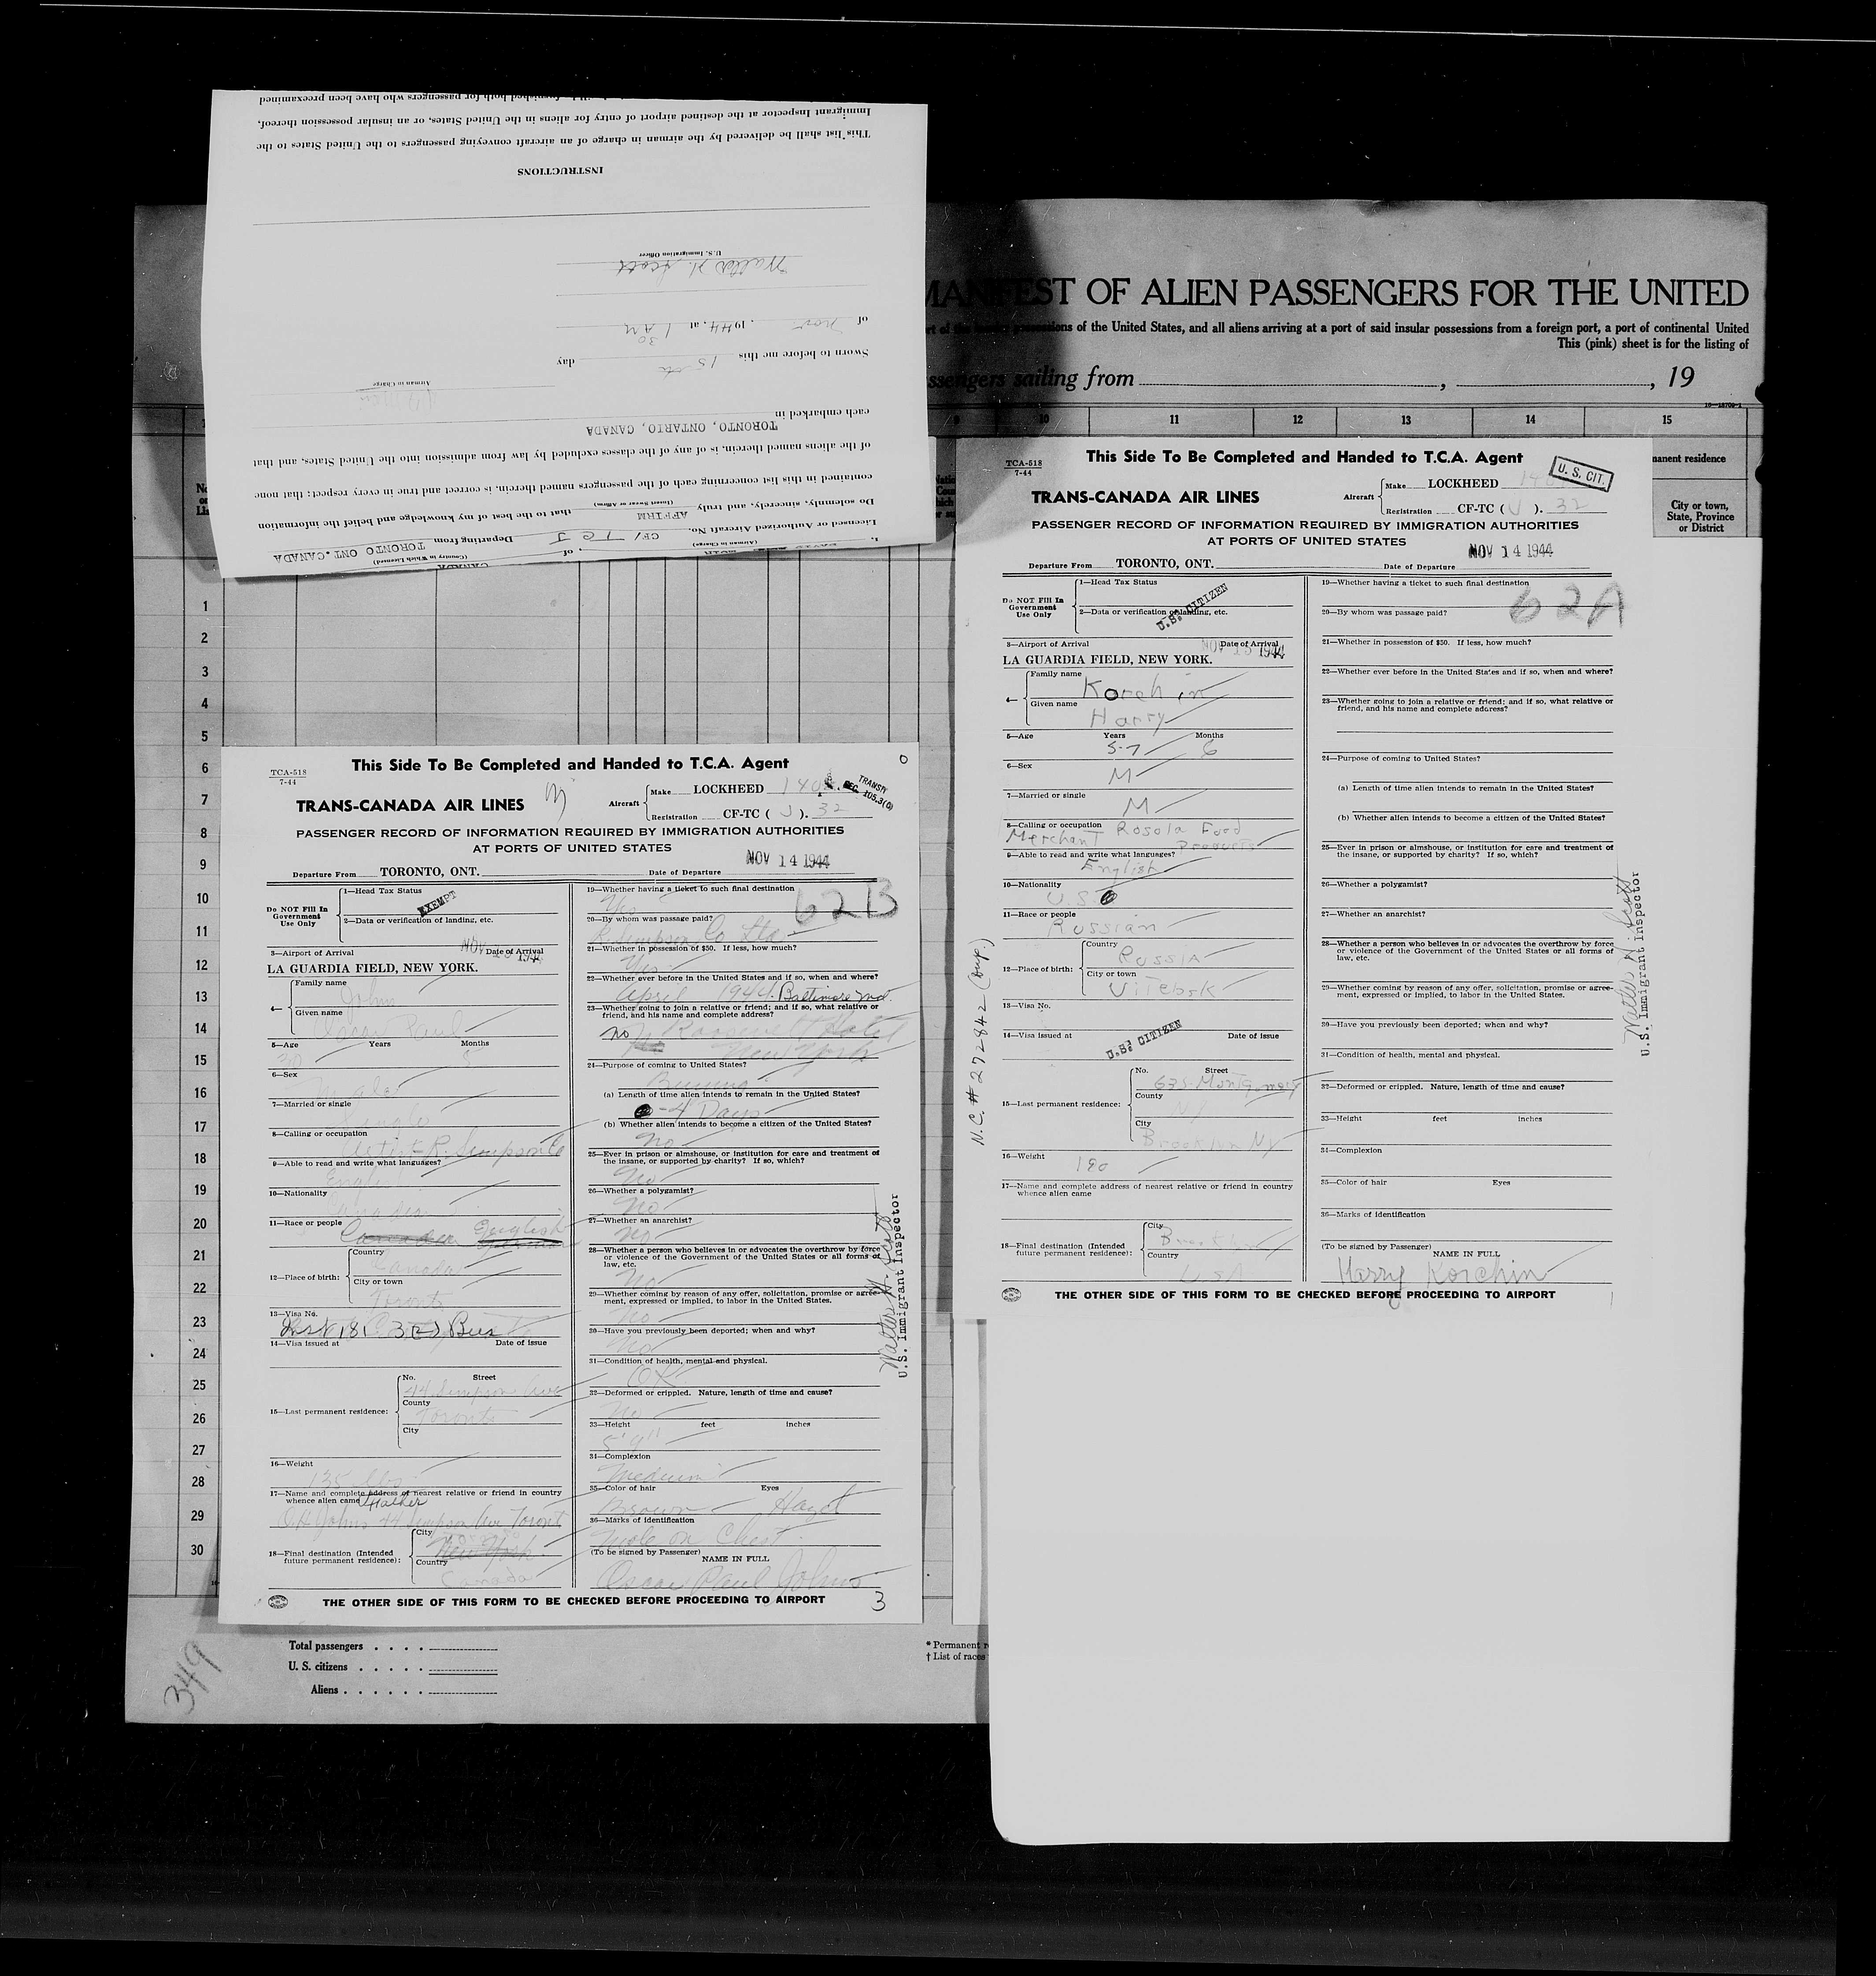 MANIFEST OF ALIEN PASSENGERS FOR THE UNITED
possessions of the United States, and all aliens arriving at a port of said insular possessions from a foreign port, a port of continental United
This (pink) sheet is for the listing of
sailing from , , 19
9 10 11 12 13 14 15
manent residence
City or town,
State, Province
or District
CANADA
(Country in Which Licensed)
I, (Airman in Charge) of
Licensed or Authorized Aircraft No. CF/ TCJ Departing from TORONTO ONT. CANADA
Do solemnly, sincerely, and truly AFFIRM that to the best of my knowledge and belief the information
(Insert Swear or Affirm)
contained in this list concerning each of the passengers named therein, is correct and true in every respect; that none
of the aliens named therein, is of any of the classes excluded by law from admission into the United States, and that
each embarked in TORONTO, ONTARIO, CANADA
Airman in Charge
Sworn to before me this 15th day
of Nov , 1944, at 1 30 AM
Walter H. Scott
U.S. Immigration Officer
INSTRUCTIONS
This list shall be delivered by the airman in charge of an aircraft conveying passengers to the United States to the
Immigrant Inspector at the destined airport of entry for aliens in the United States, or an insular possession thereof,
furnished both for passengers who have been preexamined
1
2
3
4
5
6
7
8
9
10
11
12
13
14
15
16
17
18
19
20
21
22
23
24
25
26
27
28
29
30
TCA-518
7-44
This Side To Be Completed and Handed to T.C.A. Agent
TRANS-CANADA AIR LINES
Aircraft Make LOCKHEED 1408
Registration CF-TC ( J ). 32
TRANSIT
SEC. 105.3(0)
PASSENGER RECORD OF INFORMATION REQUIRED BY IMMIGRATION AUTHORITIES
AT PORTS OF UNITED STATES
NOV 14 1944
Departure From TORONTO, ONT. Date of Departure
Do NOT Fill In
Government
Use Only
1—Head Tax Status
EXEMPT
2—Data or verification of landing, etc.
3—Airport of Arrival Date of Arrival
NOV 15 1944
LA GUARDIA FIELD, NEW YORK.
4— Family name
Johns
Given name
Oscar Paul
5—Age Years Months
6—Sex
Male
7—Married or single
Single
8—Calling or occupation
Artist R. Simpson Co
9—Able to read and write what languages?
English
10—Nationality
Canadian
11—Race or people
Canadian German English
12—Place of birth:
Country
Canada
City or town
Toronto
13—Visa No.
14—Visa issued at Date of issue
15—Last permanent residence:
No. Street
44 Simpson Ave
County
Toronto
City
16—Weight
135 lbs
17—Name and complete address of nearest relative or friend in country
whence alien came
Father
O H Johns 44 Simpson Ave Toront
18—Final destination (Intended
future permanent residence):
City
New York
Country
Canada
62B
19—Whether having a ticket to such final destination
Yes
20—By whom was passage paid?
R. Simpson Co Ltd
21—Whether in possession of $50. If less, how much?
Yes
22—Whether ever before in the United States and if so, when and where?
April 1944 Baltimore Md.
23—Whether going to join a relative or friend; and if so, what relative or
friend, and his name and complete address?
no Roosevelt Hotel
New York
24—Purpose of coming to United States?
Business
(a) Length of time alien intends to remain in the United States?
4 Days
(b) Whether alien intends to become a citizen of the United States?
No
25—Ever in prison or almshouse, or institution for care and treatment of
the insane, or supported by charity? If so, which?
No
26—Whether a polygamist?
No
27—Whether an anarchist?
No
28—Whether a person who believes in or advocates the overthrow by force
or violence of the Government of the United States or all forms of
law, etc.
No
29—Whether coming by reason of any offer, solicitation, promise or agree-
ment, expressed or implied, to labor in the United States.
No
30—Have you previously been deported; when and why?
No
31—Condition of health, mental and physical.
OK
32—Deformed or crippled. Nature, length of time and cause?
No
33—Height feet inches
5' 9"
34—Complexion
Medium
35—Color of hair Eyes
Brown Hazel
36—Marks of identification
mole on Chest
(To be signed by Passenger)
NAME IN FULL
Oscar Paul Johns
THE OTHER SIDE OF THIS FORM TO BE CHECKED BEFORE PROCEEDING TO AIRPORT
3
Walter H. Scott
U.S. Immigrant Inspector
Total passengers . . . .
U. S. citizens . . . . .
Aliens . . . . . .
349
* Permanent
† List of races
TCA-518
7-44
This Side To Be Completed and Handed to T.C.A. Agent
U. S. CIT.
TRANS-CANADA AIR LINES
Aircraft Make LOCKHEED
Registration CF-TC ( J ). 32
PASSENGER RECORD OF INFORMATION REQUIRED BY IMMIGRATION AUTHORITIES
AT PORTS OF UNITED STATES
NOV 14 1944
Departure From TORONTO, ONT. Date of Departure
Do NOT Fill In
Government
Use Only
1—Head Tax Status
2—Data or verification of landing, etc.
U.S. CITIZEN
3—Airport of Arrival Date of Arrival
NOV 15 1944
LA GUARDIA FIELD, NEW YORK.
4— Family name
Korchin
Given name
Harry
5—Age Years Months
57 6
6—Sex
M
7—Married or single
M
8—Calling or occupation
Merchant Rosola Food Products
9—Able to read and write what languages?
English
10—Nationality
U.S.
11—Race or people
Russian
12—Place of birth:
Country
Russia
City or town
Vitebsk
13—Visa No.
14—Visa issued at Date of issue
U.S. CITIZEN
15—Last permanent residence:
No. Street
635 Montgomery
County
NY
City
Brooklyn NY
16—Weight
190
17—Name and complete address of nearest relative or friend in country
whence alien came
18—Final destination (Intended
future permanent residence):
City
Brooklyn
Country
USA
N.C. # 272842 (Dup.)
62A
19—Whether having a ticket to such final destination
20—By whom was passage paid?
21—Whether in possession of $50. If less, how much?
22—Whether ever before in the United States and if so, when and where?
23—Whether going to join a relative or friend; and if so, what relative or
friend, and his name and complete address?
24—Purpose of coming to United States?
(a) Length of time alien intends to remain in the United States?
(b) Whether alien intends to become a citizen of the United States?
25—Ever in prison or almshouse, or institution for care and treatment of
the insane, or supported by charity? If so, which?
26—Whether a polygamist?
27—Whether an anarchist?
28—Whether a person who believes in or advocates the overthrow by force
or violence of the Government of the United States or all forms of
law, etc.
29—Whether coming by reason of any offer, solicitation, promise or agree-
ment, expressed or implied, to labor in the United States.
30—Have you previously been deported; when and why?
31—Condition of health, mental and physical.
32—Deformed or crippled. Nature, length of time and cause?
33—Height feet inches
34—Complexion
35—Color of hair Eyes
36—Marks of identification
(To be signed by Passenger)
NAME IN FULL
Harry Korchin
THE OTHER SIDE OF THIS FORM TO BE CHECKED BEFORE PROCEEDING TO AIRPORT
Walter H. Scott
U.S. Immigrant Inspector